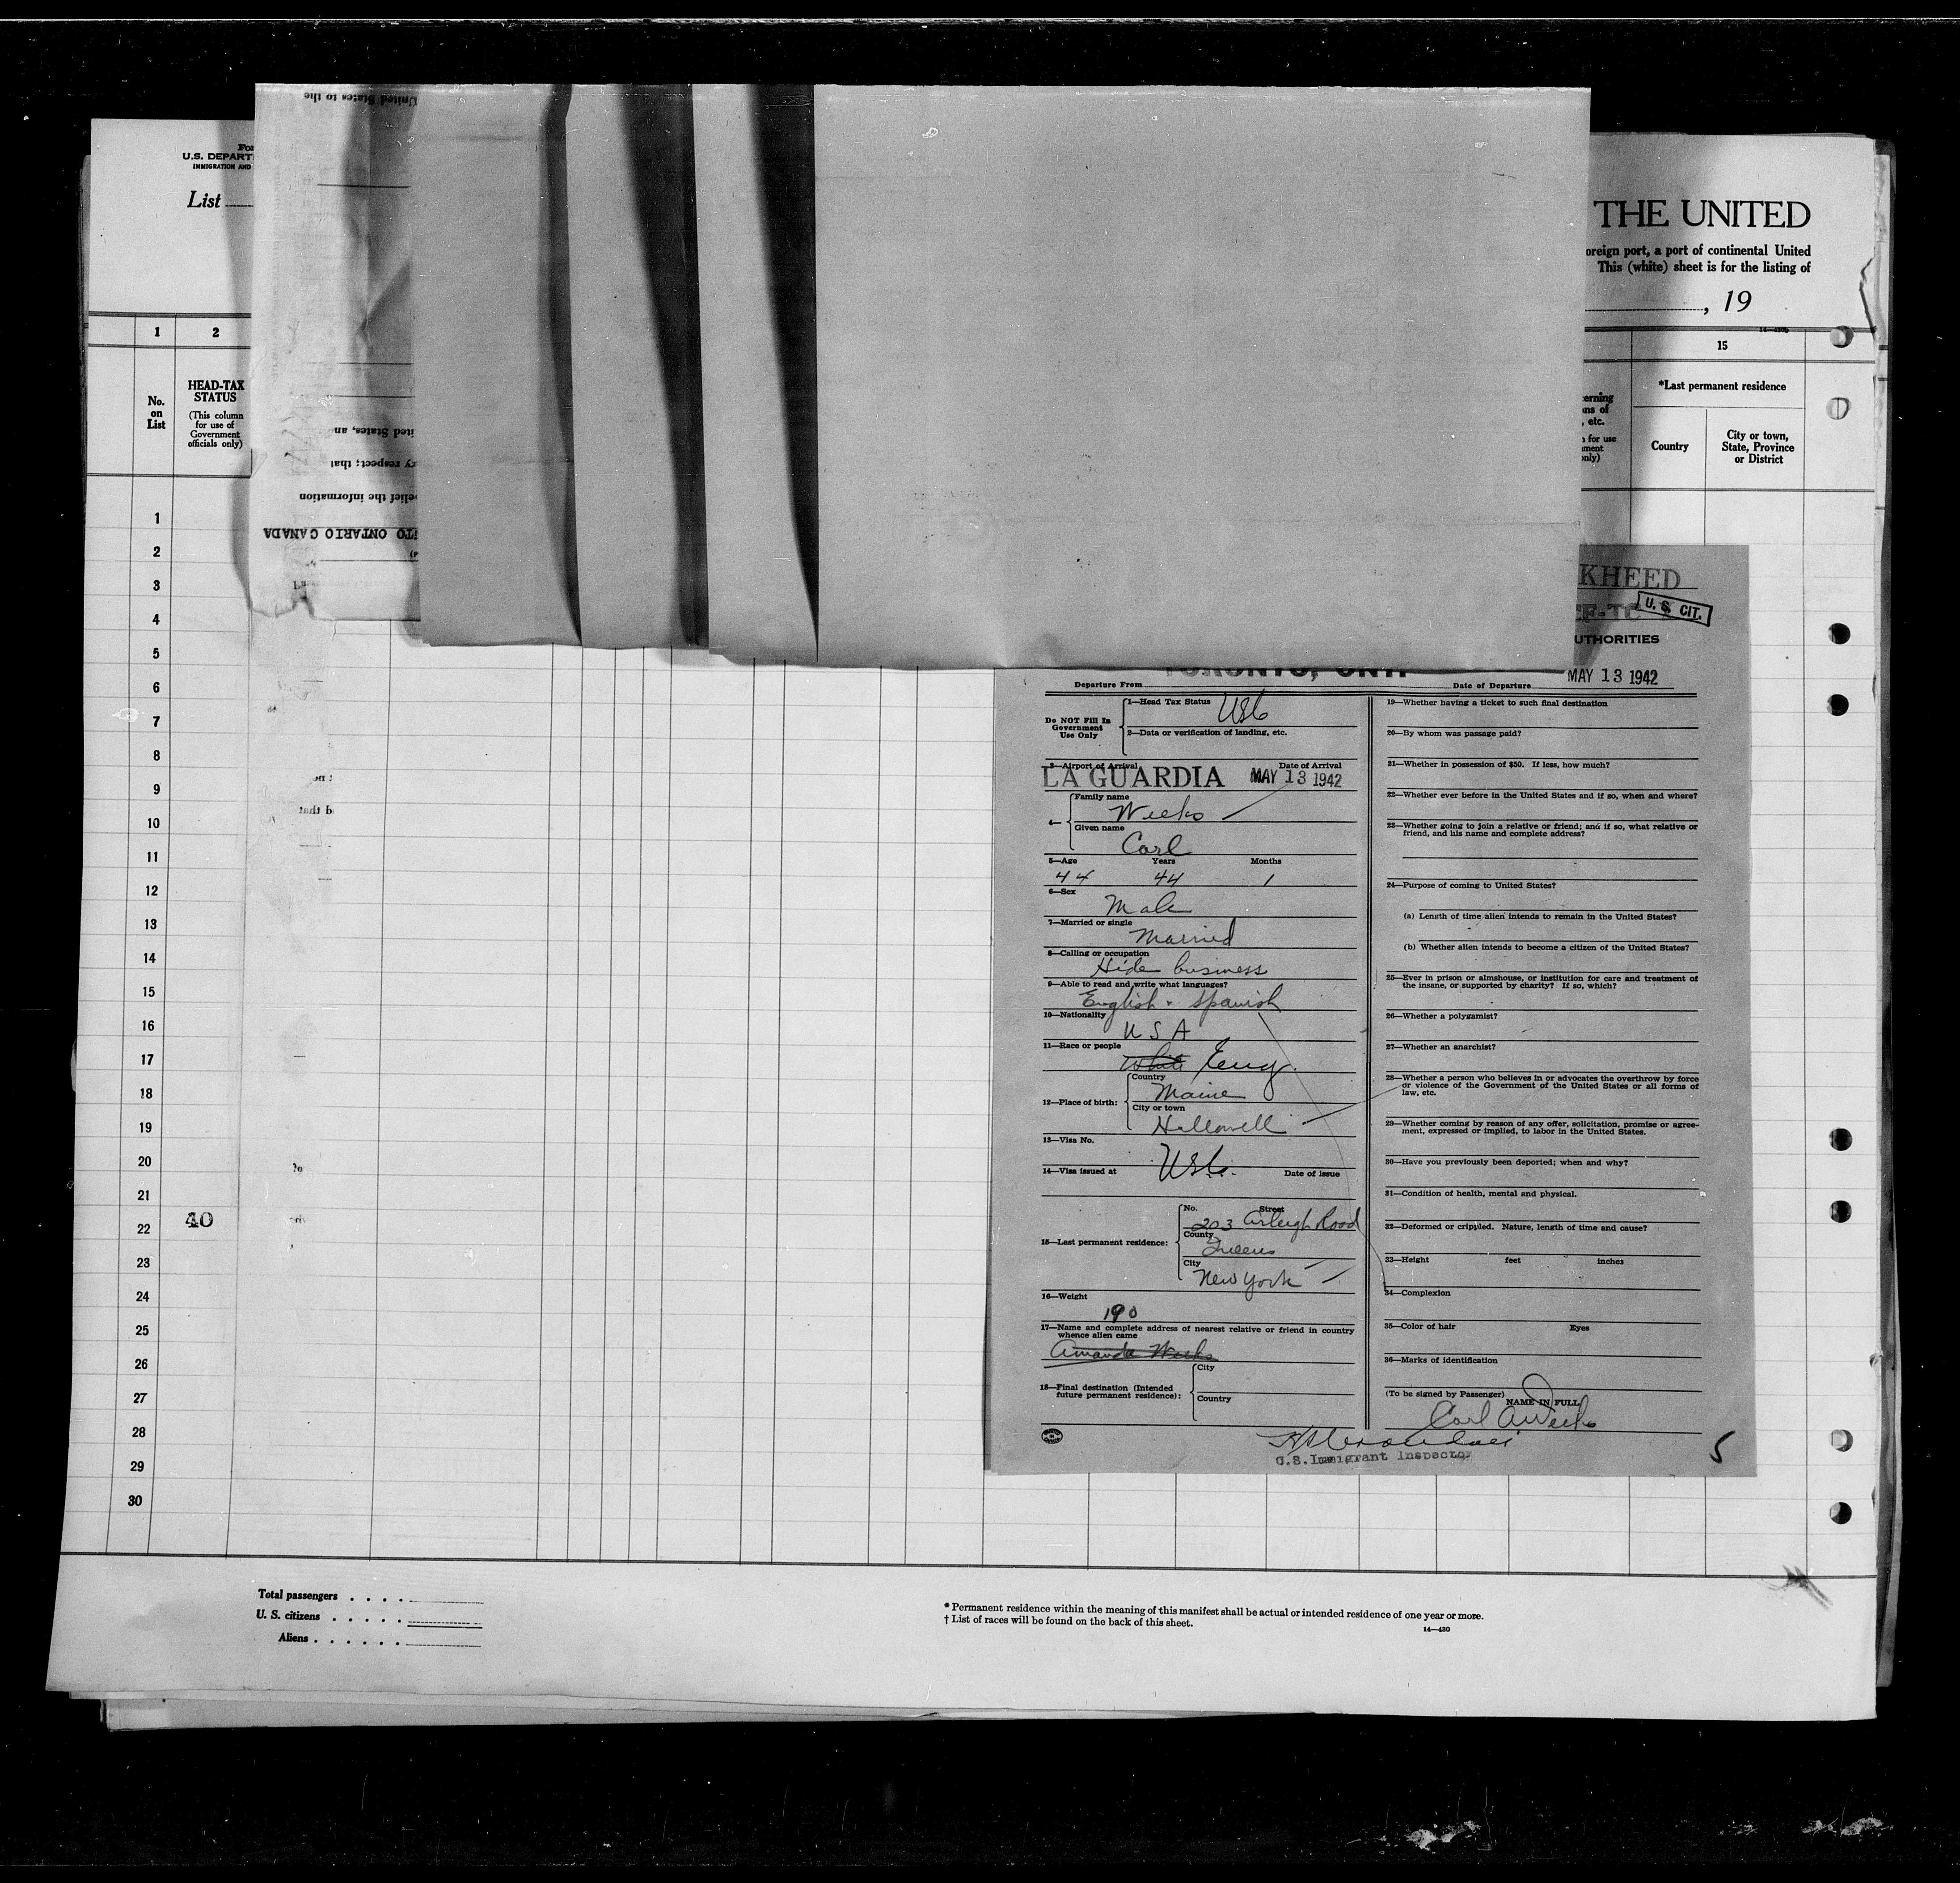 U.S. DEPART
IMMIGRATION AND
List
THE UNITED
oreign port, a port of continental United
This (white) sheet is for the listing of
, 19
1
2
15
No.
on
List
HEAD-TAX
STATUS
(This column
for use of
Government
officials only)
*Last permanent residence
Country
City or town,
State, Province
or District
United States to the
ited States, an
ry respect; that
elief the information
TO ONTARIO CANADA
1
2
3
4
5
6
7
8
9
10
11
12
13
14
15
16
17
18
19
20
21
22
23
24
25
26
27
28
29
30
40
KHEED
U. S. CIT.
UTHORITIES
TORONTO, ONT.
MAY 13 1942
Departure From
Date of Departure
Do NOT Fill In
Government
Use Only
1—Head Tax Status USC
2—Data or verification of landing, etc.
3—Airport of Arrival
Date of Arrival
LA GUARDIA MAY 13 1942
4—
Family name
Weeks
Given name
Carl
5—Age Years Months
44 44 1
6—Sex
Male
7—Married or single
Married
8—Calling or occupation
Hide business
9—Able to read and write what languages?
English & Spanish
10—Nationality
U S A
11—Race or people
White Eng.
12—Place of birth:
Country
Maine
City or town
Hallowell
13—Visa No.
14—Visa issued at USC. Date of issue
15—Last permanent residence:
No. Street
203 Arleigh Road
County
Queens
City
New York
16—Weight
190
17—Name and complete address of nearest relative or friend in country
whence alien came
Amanda Weeks
18—Final destination (Intended
future permanent residence):
City
Country
19—Whether having a ticket to such final destination
20—By whom was passage paid?
21—Whether in possession of $50. If less, how much?
22—Whether ever before in the United States and if so, when and where?
23—Whether going to join a relative or friend; and if so, what relative or
friend, and his name and complete address?
24—Purpose of coming to United States?
(a) Length of time alien intends to remain in the United States?
(b) Whether alien intends to become a citizen of the United States?
25—Ever in prison or almshouse, or institution for care and treatment of
the insane, or supported by charity? If so, which?
26—Whether a polygamist?
27—Whether an anarchist?
28—Whether a person who believes in or advocates the overthrow by force
or violence of the Government of the United States or all forms of
law, etc.
29—Whether coming by reason of any offer, solicitation, promise or agree-
ment, expressed or implied, to labor in the United States.
30—Have you previously been deported; when and why?
31—Condition of health, mental and physical.
32—Deformed or crippled. Nature, length of time and cause?
33—Height feet inches
34—Complexion
35—Color of hair Eyes
36—Marks of identification
(To be signed by Passenger) NAME IN FULL
Carl A Weeks
U.S. Immigrant Inspector
5
Total passengers
U. S. citizens
Aliens
* Permanent residence within the meaning of this manifest shall be actual or intended residence of one year or more.
† List of races will be found on the back of this sheet.
14—430